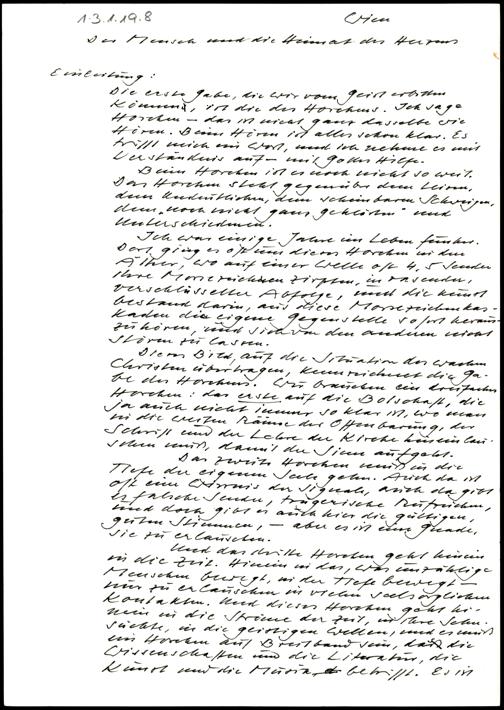 13.1.198 Wien
Der Mensch und die Heimat des Herzens
Einleitung:
Die erste Gabe, die wir vom Geist erbitten
können, ist die des Horchens. Ich sage
Horchen – das ist nicht ganz dasselbe wie
Hören. Beim Hören ist alles schon klar. Es
trifft mich ein Wort, und ich nehme es mit
Verständnis auf – mit Gottes Hilfe.
Beim Horchen ist es noch nicht so weit.
Das Horchen steht gegenüber dem Leisen,
dem Undeutlichen, dem scheinbaren Schweigen,
dem "noch nicht ganz geklärten" und
Unterschiedenen.
Ich war einige Jahre im Leben Funker.
Dort ging es oft um dieses Horchen in den
Äther, wo auf einer Welle oft 4, 5 Sender
ihre Morsezeichen zirpten, in rasender,
verschlüsselter Abfolge, und die Kunst
bestand darin, aus diesen Morsezeichenkas-
kaden die eigene Gegenstelle sofort heraus
zu hören, und sich von den anderen nicht
stören zu lassen.
Dieses Bild, auf die Situation des wachen
Christen übertragen, kennzeichnet die Ga-
be des Horchens. Wir brauchen ein dreifaches
Horchen: das erste auf die Botschaft, die
ja auch nicht immer so klar ist, wo man
in die weiten Räume der Offenbarung, der
Schrift und der Lehre der Kirche hineinlau-
schen muß, damit der Sinn aufgeht.
Das zweite Horchen muß in die
Tiefe der eigenen Seele gehn. Auch da ist
oft eine Wirrnis der Signale, auch da gibt
es falsche Sender, trügerische Rufzeichen,
und doch gibt es auch hier die gültigen,
guten Stimmen, – aber es ist eine Gnade,
sie zu erlauschen.
Und das dritte Horchen geht hinein
in die Zeit. Hinein in das, was unzählige
Menschen bewegt, in der Tiefe bewegt –
nur zu erlauschen in vielen seelsorglichen
Kontakten. Und dieses Horchen geht hi-
nein in die Ströme der Zeit, in ihre Sehn-
süchte, in die geistigen Wellen, und es muß
ein Horchen auf Breitband sein, das die
Wissenschaften und die Literatur, die
Kunst und die Musik betrifft. Es ist